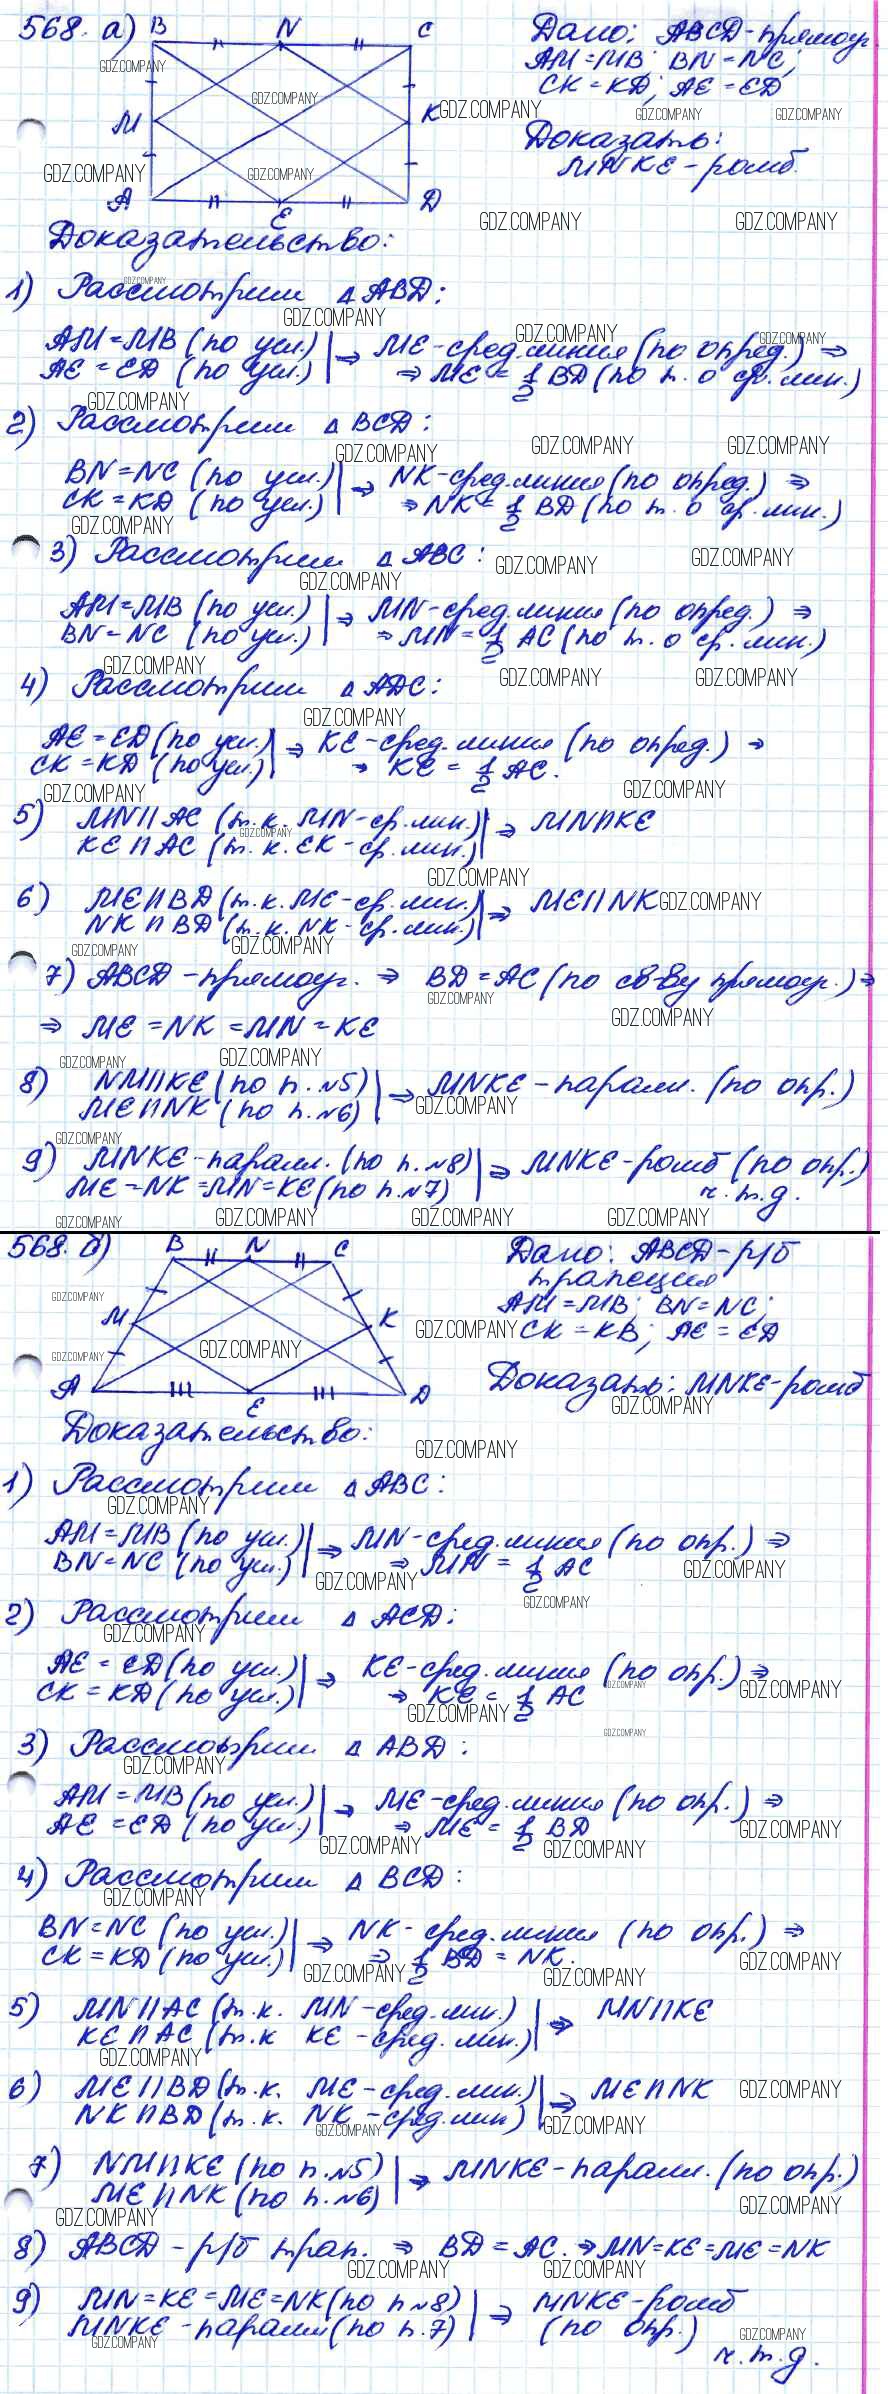 568. а) B N C
M K
A E D
Дано: ABCD - прямоуг.
AM = MB; BN = NC;
CK = KD; AE = ED
Доказать:
MNKE - ромб.
Доказательство:
1) Рассмотрим △ ABD:
AM = MB (по усл.) | ⇒ ME - сред. линия (по опред.) ⇒
AE = ED (по усл.) | ⇒ ME = 1/2 BD (по т. о ср. лин.)
2) Рассмотрим △ BCD:
BN = NC (по усл.) | ⇒ NK - сред. линия (по опред.) ⇒
CK = KD (по усл.) | ⇒ NK = 1/2 BD (по т. о ср. лин.)
3) Рассмотрим △ ABC:
AM = MB (по усл.) | ⇒ MN - сред. линия (по опред.) ⇒
BN = NC (по усл.) | ⇒ MN = 1/2 AC (по т. о ср. лин.)
4) Рассмотрим △ ADC:
AE = ED (по усл.) | ⇒ KE - сред. линия (по опред.) ⇒
CK = KD (по усл.) | ⇒ KE = 1/2 AC.
5) MN || AC (т.к. MN - ср. лин.) | ⇒ MN || KE
KE || AC (т.к. EK - ср. лин.)
6) ME || BD (т.к. ME - ср. лин.) | ⇒ ME || NK
NK || BD (т.к. NK - ср. лин.)
7) ABCD - прямоуг. ⇒ BD = AC (по св-ву прямоуг.) ⇒
⇒ ME = NK = MN = KE
8) NM || KE (по п. №5) | ⇒ MNKE - паралл. (по опр.)
ME || NK (по п. №6)
9) MNKE - паралл. (по п. №8) | ⇒ MNKE - ромб (по опр.)
ME = NK = MN = KE (по п. №7) ч.т.д.
568. б) B N C
M K
A E D
Дано: ABCD - р/б
трапеция
AM = MB; BN = NC;
CK = KB; AE = ED
Доказать: MNKE - ромб
Доказательство:
1) Рассмотрим △ ABC:
AM = MB (по усл.) | ⇒ MN - сред. линия (по опр.) ⇒
BN = NC (по усл.) | ⇒ MN = 1/2 AC
2) Рассмотрим △ ACD:
AE = ED (по усл.) | ⇒ KE - сред. линия (по опр.) ⇒
CK = KD (по усл.) | ⇒ KE = 1/2 AC
3) Рассмотрим △ ABD:
AM = MB (по усл.) | ⇒ ME - сред. линия (по опр.) ⇒
AE = ED (по усл.) | ⇒ ME = 1/2 BD
4) Рассмотрим △ BCD:
BN = NC (по усл.) | ⇒ NK - сред. линия (по опр.) ⇒
CK = KD (по усл.) | ⇒ 1/2 BD = NK.
5) MN || AC (т.к. MN - сред. лин.) | ⇒ MN || KE
KE || AC (т.к KE - сред. лин.)
6) ME || BD (т.к. ME - сред. лин.) | ⇒ ME || NK
NK || BD (т.к. NK - сред. лин)
7) NM || KE (по п. №5) | ⇒ MNKE - паралл. (по опр.)
ME || NK (по п. №6)
8) ABCD - р/б трап. ⇒ BD = AC. ⇒ MN = KE = ME = NK
9) MN = KE = ME = NK (по п №8) | ⇒ MNKE - ромб
MNKE - паралл (по п. 7) (по опр.)
ч.т.д.
GDZ.COMPANY